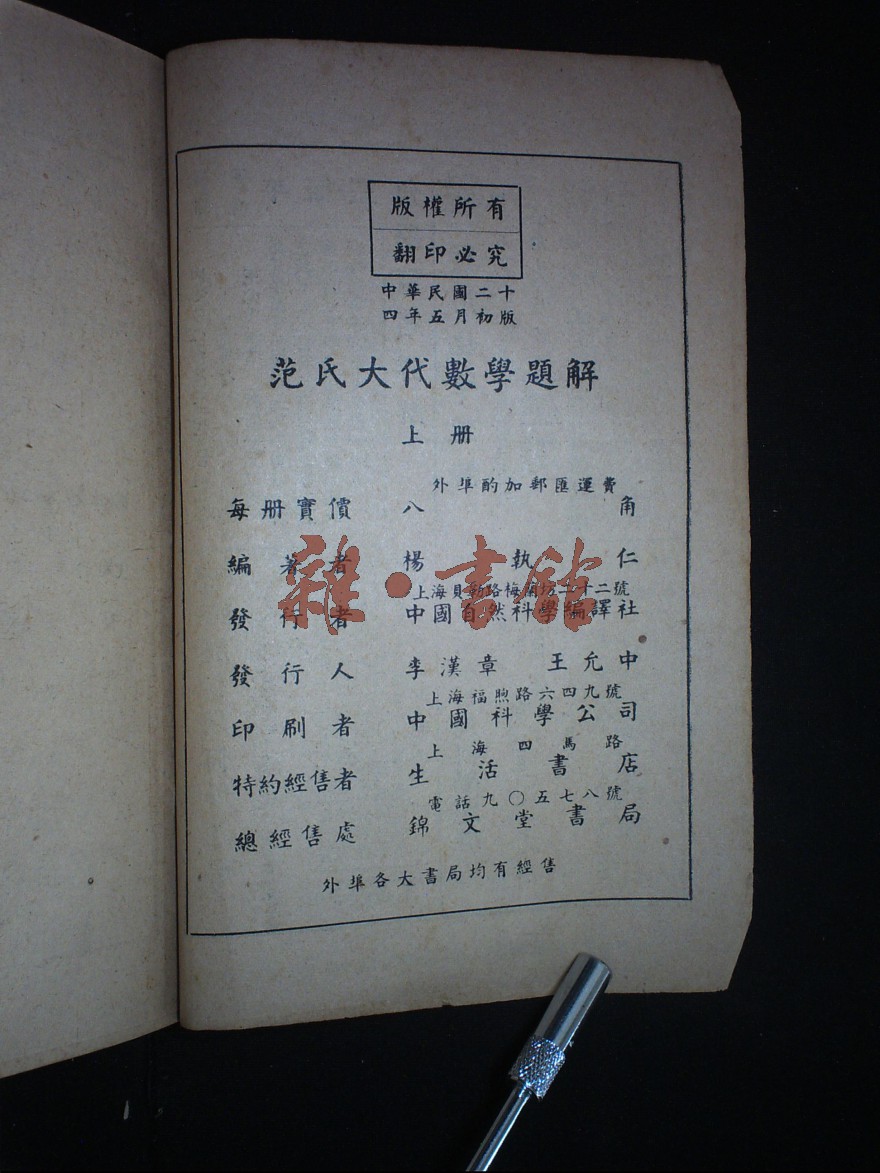 版權所有
翻印必究
中華民國二十
四年五月初版
范氏大代數學題解
上册
外埠酌加郵匯運費
每册實價 八角
編著者 楊執仁
上海貝勒路梅蘭坊二十二號
發行者 中國自然科學編譯社
發行人 李漢章 王允中
上海福煦路六四九號
印刷者 中國科學公司
上海四馬路
特約經售者 生活書店
電話九〇五七八號
總經售處 錦文堂書局
外埠各大書局均有經售
雜·書館